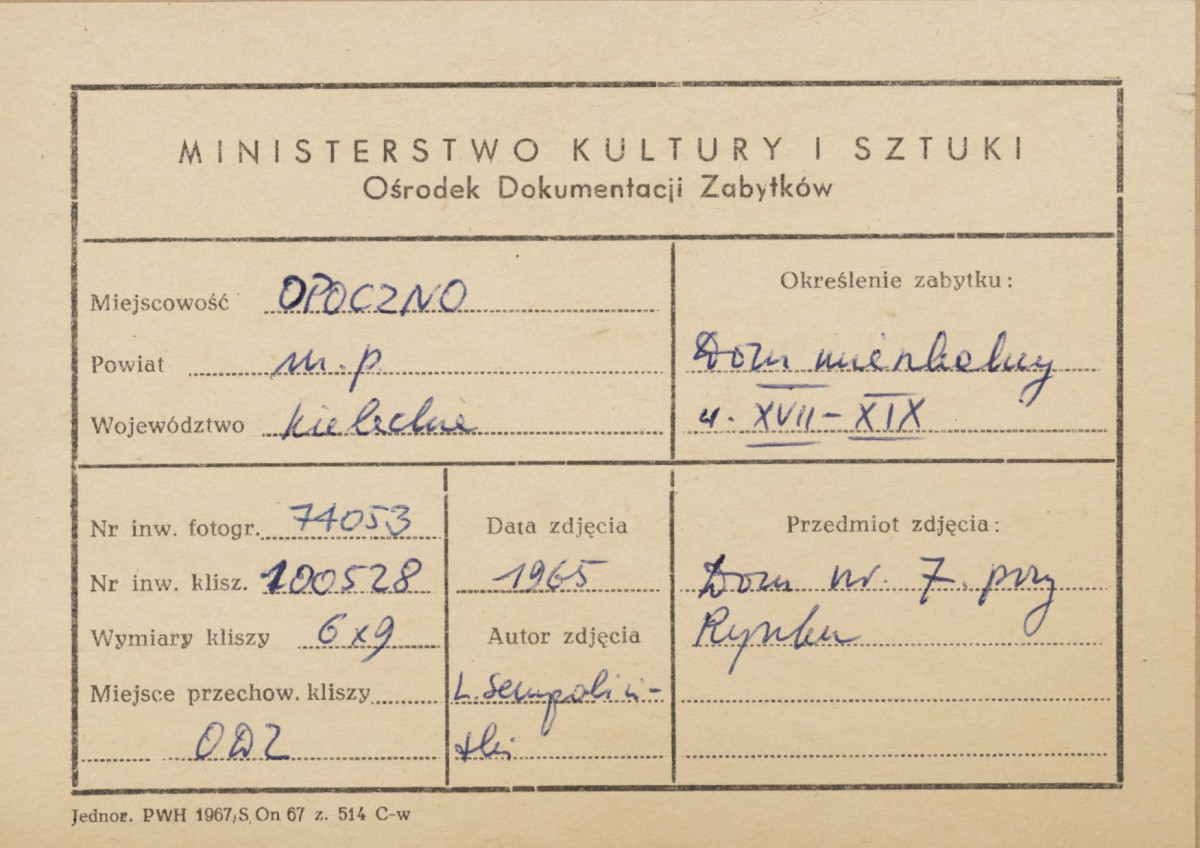 MINISTERSTWO KULTURY I SZTUKI
Ośrodek Dokumentacji Zabytków
Miejscowość OPOCZNO
Powiat m.p.
Województwo kieleckie
Określenie zabytku:
Dom mieszkalny
w. XVII-XIX
Nr inw. fotogr. 74053
Nr inw. klisz. 100528
Wymiary kliszy 6x9
Miejsce przechow. kliszy
ODZ
Data zdjęcia
1965
Autor zdjęcia
L. Sempoliń-
ski
Przedmiot zdjęcia:
Dom nr. 7. przy
Rynku
Jednor. PWH 1967/S On 67 z. 514 C-w